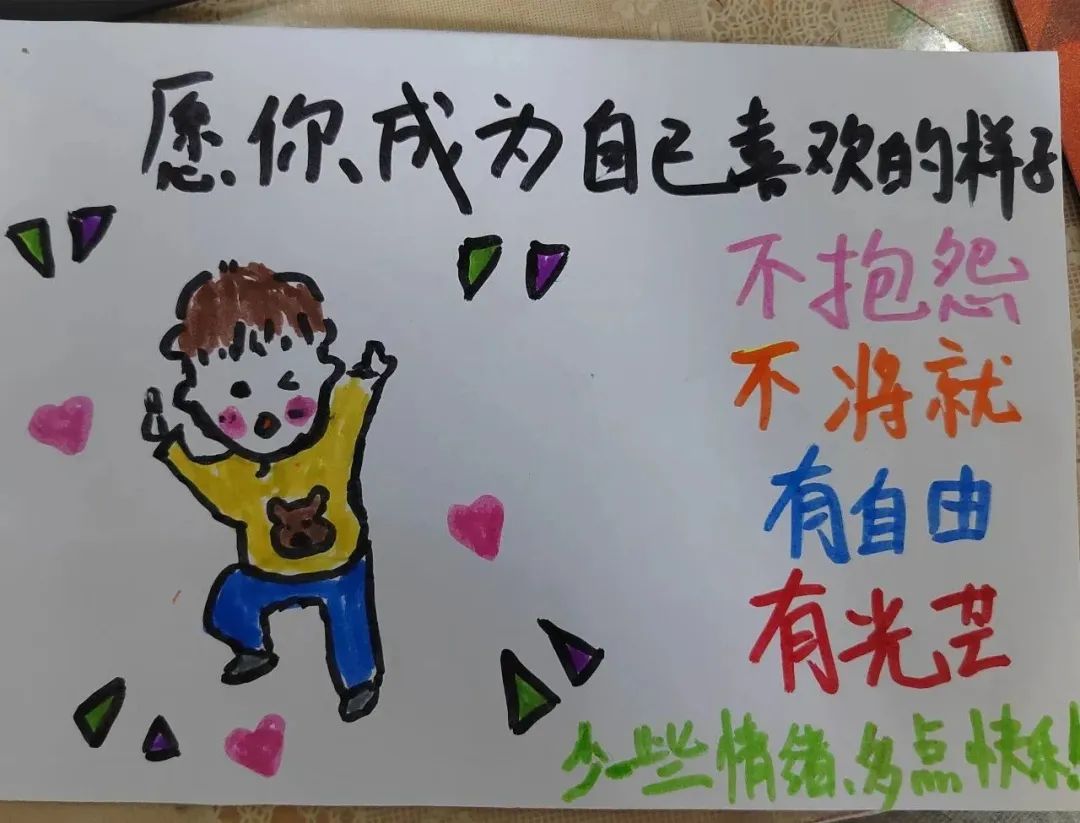 愿你成为自己喜欢的样子
不抱怨
不将就
有自由
有光芒
少一些情绪、多点快乐!